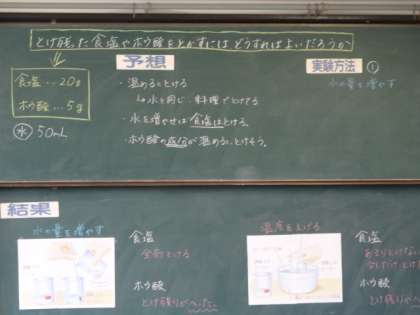 とけ残った食塩やホウ酸をとかすにはどうすればよいだろうか
食塩…20g
ホウ酸…5g
水 50mL
予想
・温めるととける
・水を増やせば食塩はとける。
・ホウ酸の成分が温めるととけそう。
実験方法 ①
水の量を増やす
結果
水の量を増やす
食塩
全部とける
ホウ酸
とけ残りが
温度を上げる
食塩
あまりとけない
ホウ酸
とけ残りが